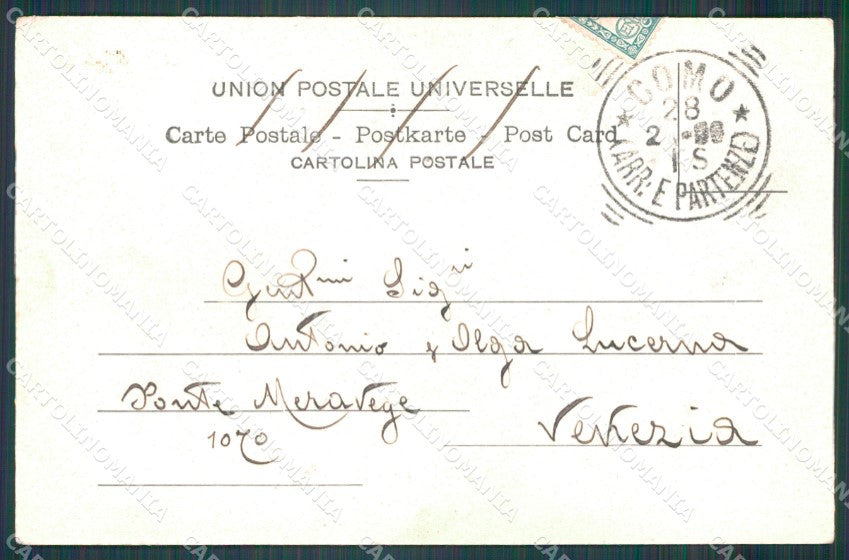 UNION POSTALE UNIVERSELLE
Carte Postale - Postkarte - Post Card
CARTOLINA POSTALE
COMO
28
2
1 S
(ARR. E PARTENZE)
Gent.mi Sigri
Antonio & Olga Lucerna
Ponte Meravege
1070
Venezia
CARTOLINOMANIA